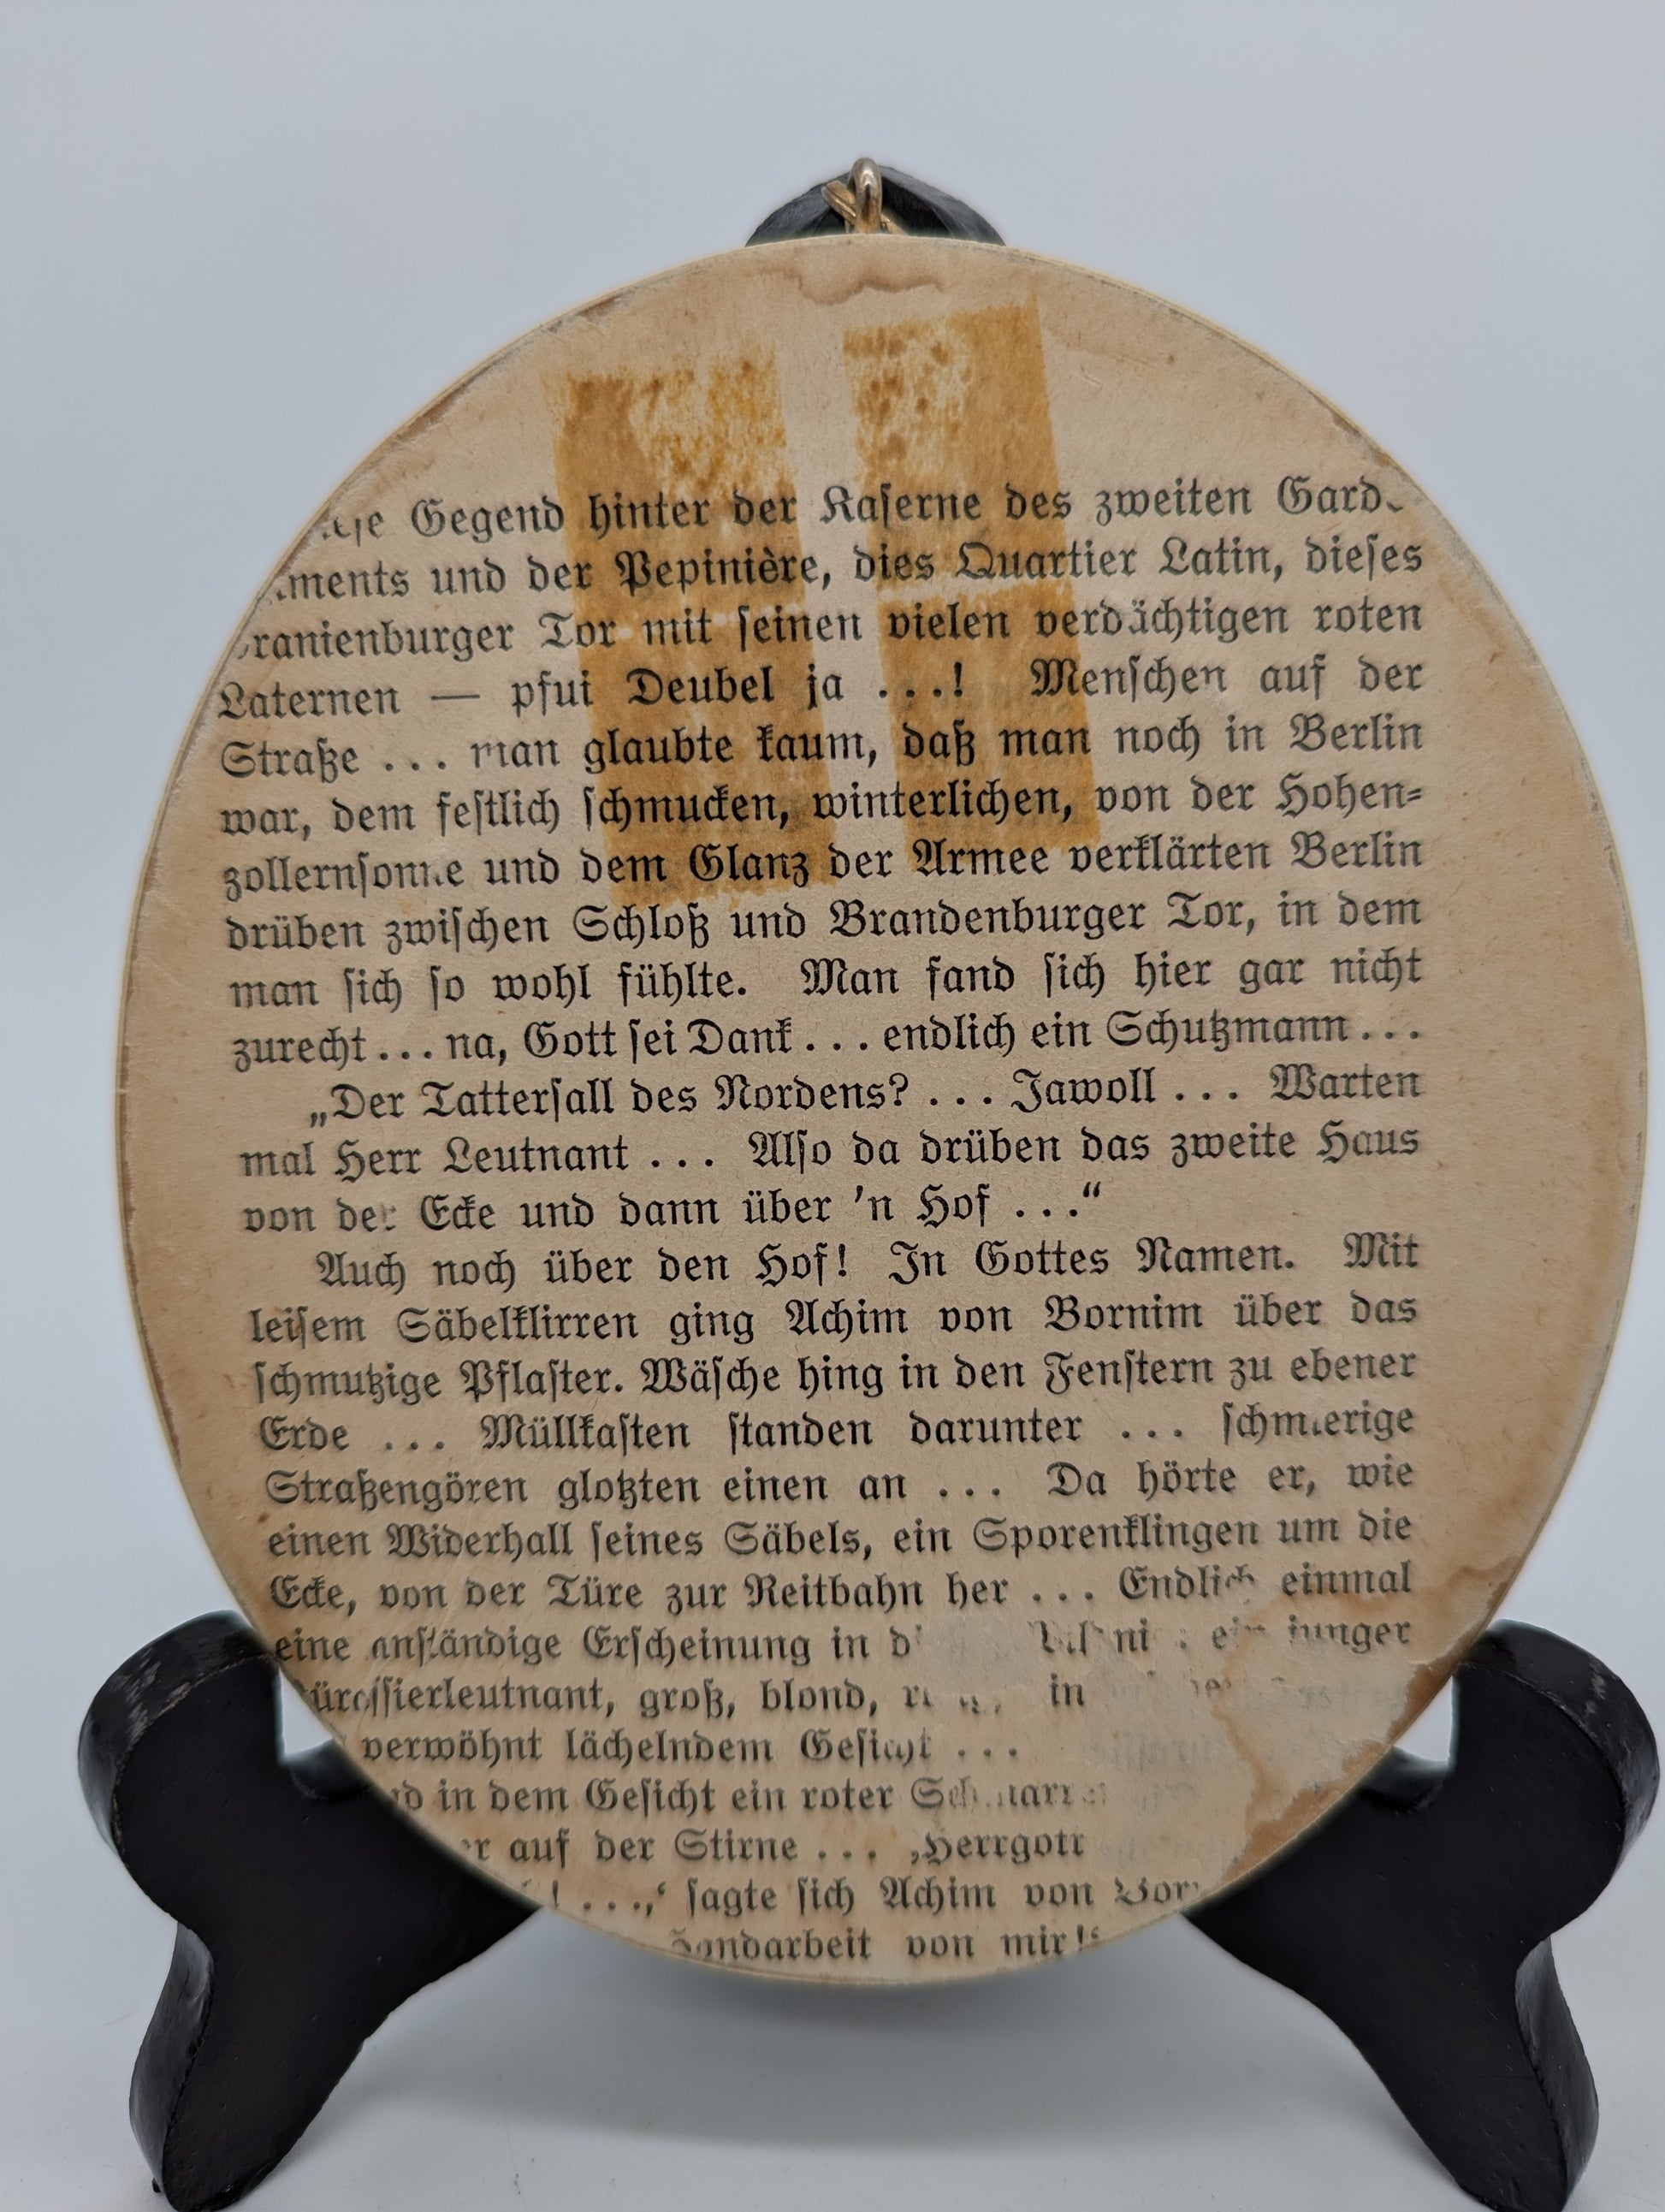 Gegend hinter der Kaſerne des zweiten
und der Pepinière, dies Quartier Latin, dieſes
Tor mit ſeinen vielen verdächtigen roten
Laternen — pfui Deubel ja ...! Menſchen auf der
Straße ... man glaubte kaum, daß man noch in Berlin
war, dem feſtlich ſchmucken, winterlichen, von der Hohen-
zollernſonne und dem Glanz der Armee verklärten Berlin
drüben zwiſchen Schloß und Brandenburger Tor, in dem
man ſich ſo wohl fühlte. Man fand ſich hier gar nicht
zurecht ... na, Gott ſei Dank ... endlich ein Schutzmann ...
„Der Tatterſall des Nordens? ... Jawoll ... Warten
mal Herr Leutnant ... Alſo da drüben das zweite Haus
von der Ecke und dann über 'n Hof ...“
Auch noch über den Hof! In Gottes Namen. Mit
leiſem Säbelklirren ging Achim von Bornim über das
ſchmutzige Pflaſter. Wäſche hing in den Fenſtern zu ebener
Erde ... Müllkaſten ſtanden darunter ... ſchmierige
Straßengören glotzten einen an ... Da hörte er, wie
einen Widerhall ſeines Säbels, ein Sporenklingen um die
Ecke, von der Türe zur Reitbahn her ... Endlich einmal
eine anſtändige Erſcheinung in ein junger
groß, blond, in
verwöhnt lächelndem Geſicht ...
in dem Geſicht ein roter
auf der Stirne ... ‚Herrgott
...,‘ ſagte ſich Achim von
Handarbeit von mir!‘